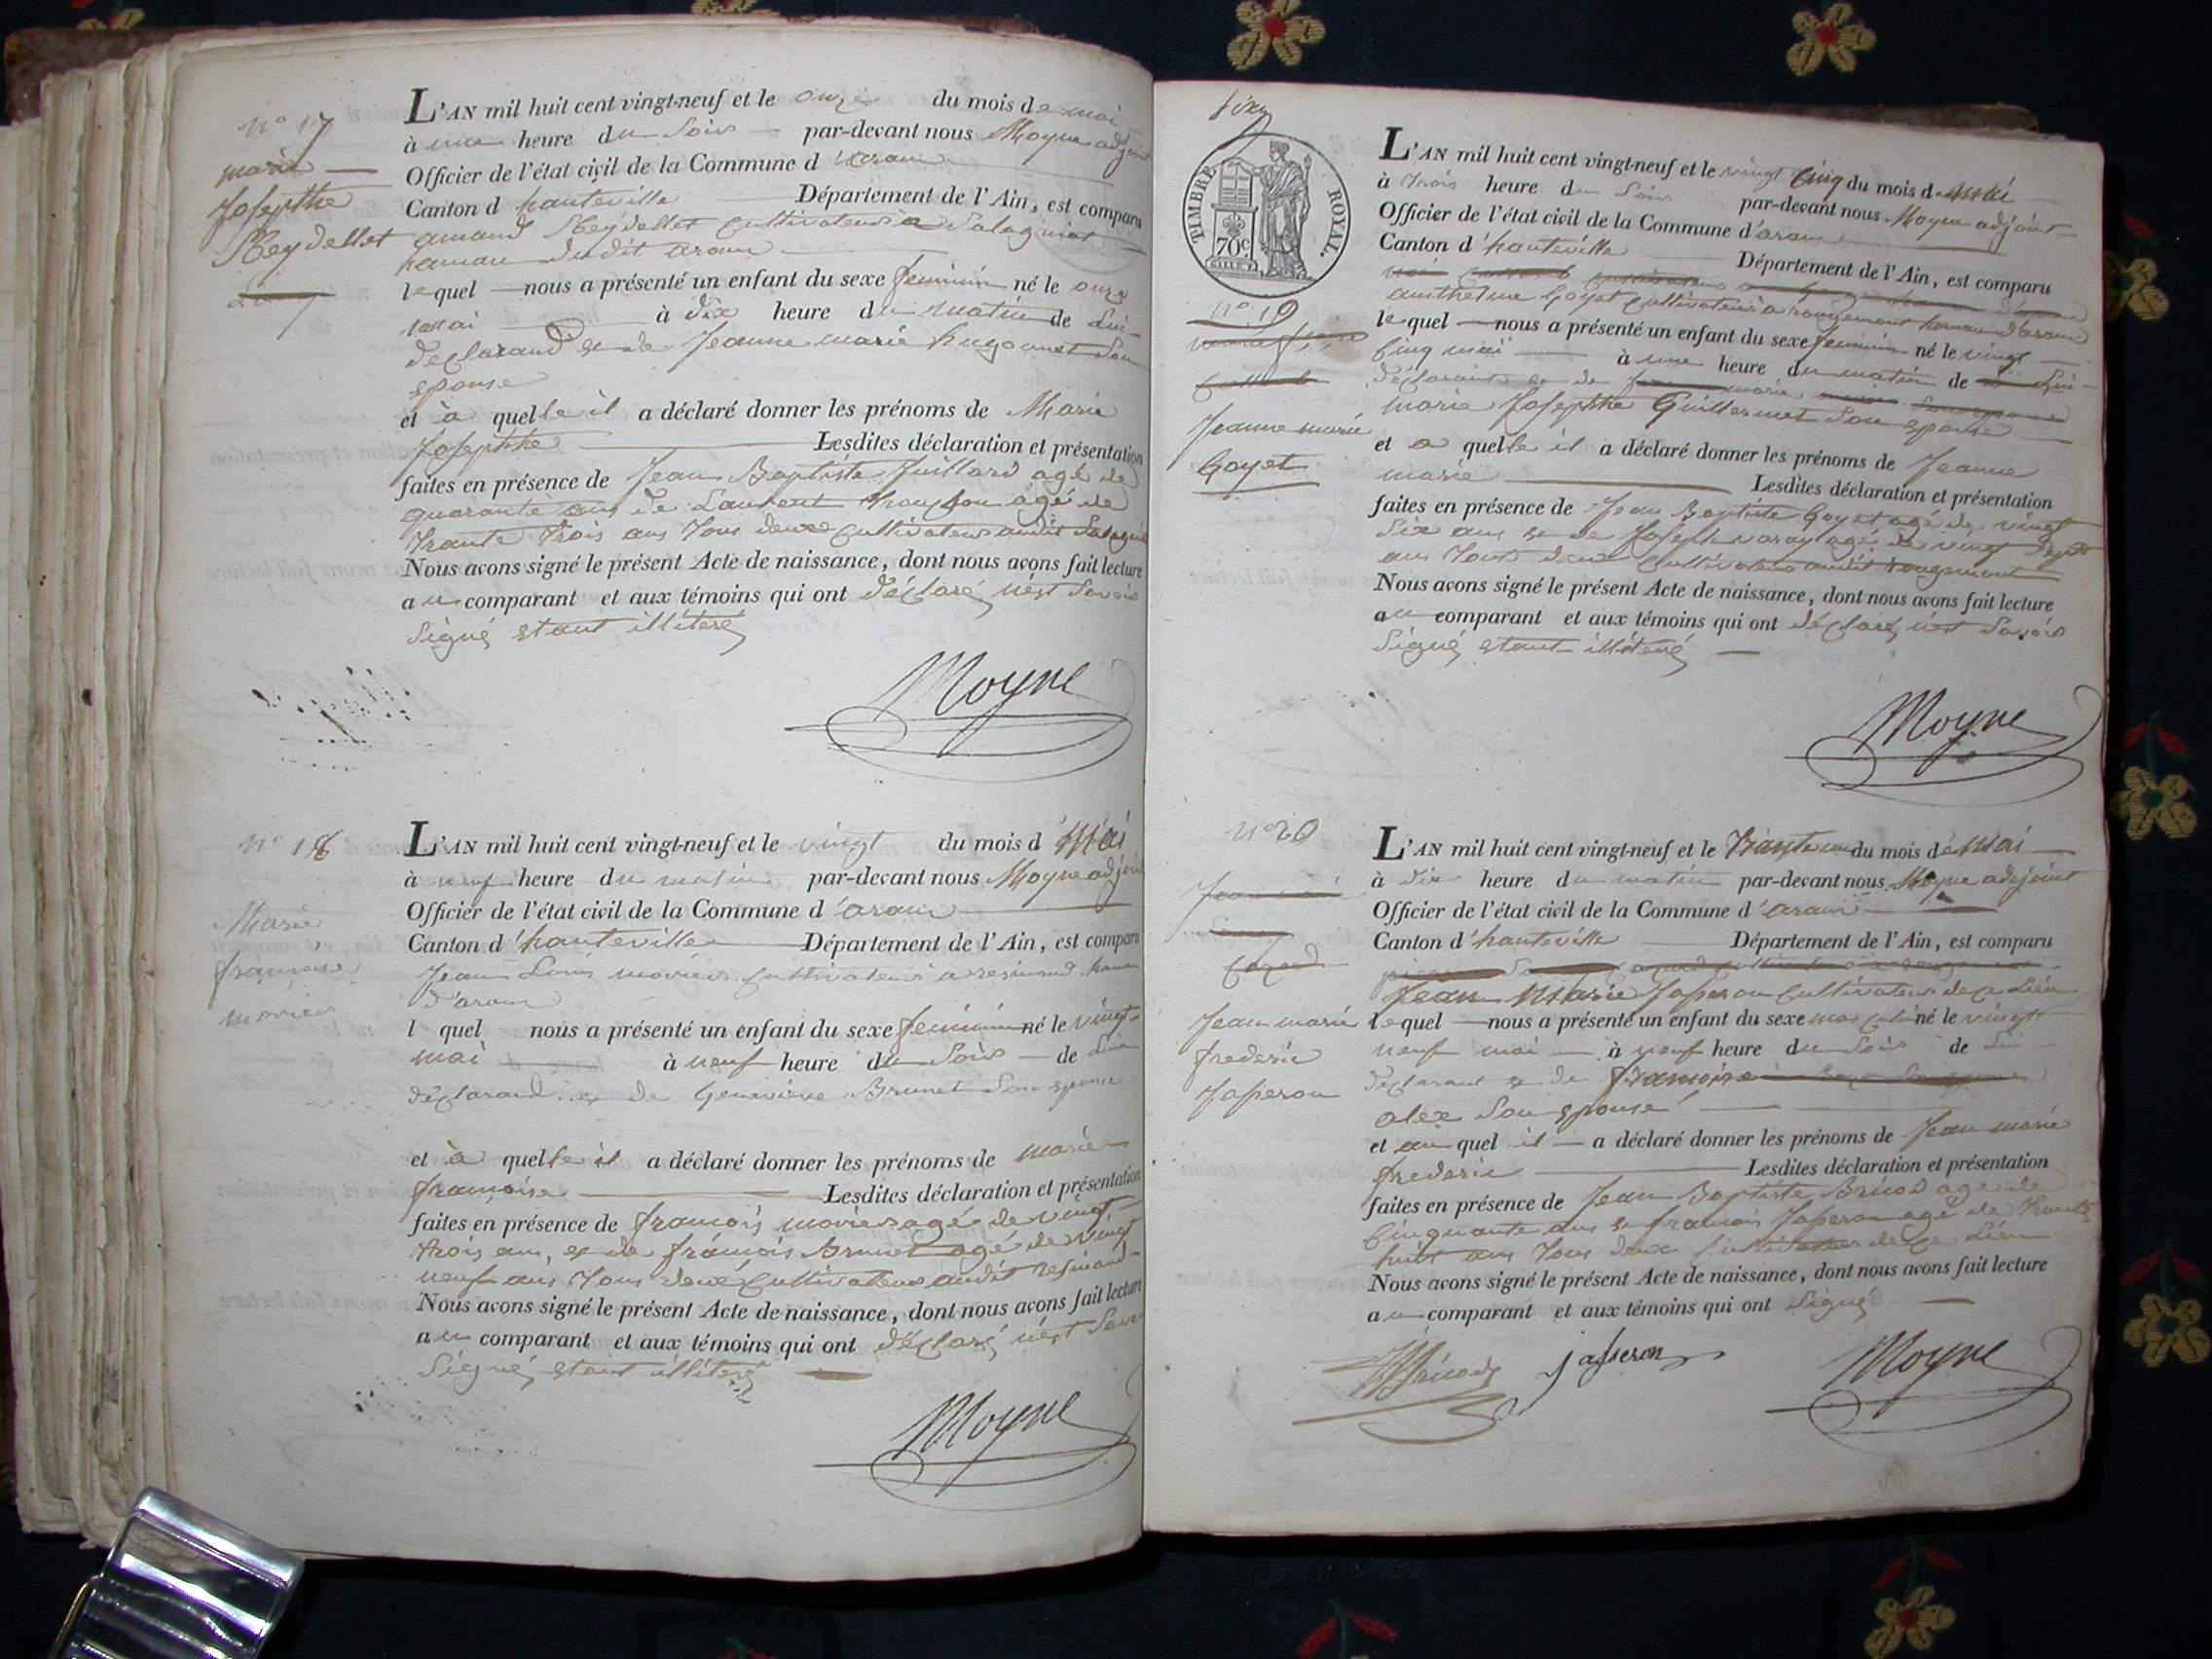 N° 17
marie
Josephte
Reydellet
L'AN mil huit cent vingt-neuf et le onze du mois de mai
à une heure du Soir par-devant nous Moyne adjoint
Officier de l'état civil de la Commune d'aranc
Canton d hauteville Département de l'Ain, est comparu
amand Reydellet Cultivateur a
hamau dudit aranc
lequel nous a présenté un enfant du sexe feminin né le onze
mai à dix heure du matin de Lui
declarand et de Jeanne marie hugonnet Son
epouse
et à quelle il a déclaré donner les prénoms de Marie
Josephte Lesdites déclaration et présentation
faites en présence de Jean Baptiste Juillard agé de
quarante ans de Laurent agé de
trante trois ans tous deux Cultivateur audit
Nous avons signé le présent Acte de naissance, dont nous avons fait lecture
au comparant et aux témoins qui ont déclaré n'est Savoir
Signé etant illiteré
Moyne
N° 18
Marie
françoise
moviér
L'AN mil huit cent vingt-neuf et le vingt du mois d Mai
à neuf heure du matin par-devant nous Moyne adjoin
Officier de l'état civil de la Commune d'aranc
Canton d'hauteville Département de l'Ain, est comparu
Jean Louis moviér Cultivateur a resinand
d'aranc
l quel nous a présenté un enfant du sexe feminin né le vingt
mai à neuf heure du Soir de Lui
déclarand et de Geneviève Brunet Son epouse
et à quelle il a déclaré donner les prénoms de marie
françoise Lesdites déclaration et présentation
faites en présence de françois moviér agé de vingt
trois ans, et de françois Brunet agé de vingt
neuf ans tous deux Cultivateur audit resinand
Nous avons signé le présent Acte de naissance, dont nous avons fait lecture
au comparant et aux témoins qui ont déclaré n'est Savoir
Signé etant illiteré
Moyne
TIMBRE ROYAL.
70c
N° 19
Jeanne marie
Goyet
L'AN mil huit cent vingt-neuf et le vingt Cinq du mois de Mai
à trois heure du Soir par-devant nous Moyne adjoint
Officier de l'état civil de la Commune d'aranc
Canton d'hauteville Département de l'Ain, est comparu
anthelme Goyet Cultivateur à rougemont hamau d'aranc
lequel nous a présenté un enfant du sexe feminin né le vingt
Cinq mai à une heure du matin de Lui
déclarant et de
marie Josephte Guillermet Son epouse
et a quelle il a déclaré donner les prénoms de Jeanne
marie Lesdites déclaration et présentation
faites en présence de Jean Baptiste Goyet agé de vingt
Six ans et de Joseph varay agé de vingt Sept
ans tous deux Cultivateur audit rougemont
Nous avons signé le présent Acte de naissance, dont nous avons fait lecture
au comparant et aux témoins qui ont déclaré n'est Savoir
Signé etant illiteré
Moyne
N° 20
Jean marie
frederic
Jasseron
L'AN mil huit cent vingt-neuf et le Trante un du mois de Mai
à dix heure du matin par-devant nous Moyne adejoint
Officier de l'état civil de la Commune d'aranc
Canton d'hauteville Département de l'Ain, est comparu
Jean Marie Jasseron Cultivateur de Ce Lieu
lequel nous a présenté un enfant du sexe masculin né le vingt
neuf mai à neuf heure du Soir de Lui
déclarant et de françoise
alex Son epouse
et au quel il a déclaré donner les prénoms de Jean marie
frederic Lesdites déclaration et présentation
faites en présence de Jean Baptiste Bricod agé de
Cinquante ans et françois Jasseron agé de trante
huit ans tous deux Cultivateur de Ce Lieu
Nous avons signé le présent Acte de naissance, dont nous avons fait lecture
au comparant et aux témoins qui ont Signé
Bricod jasseron Moyne